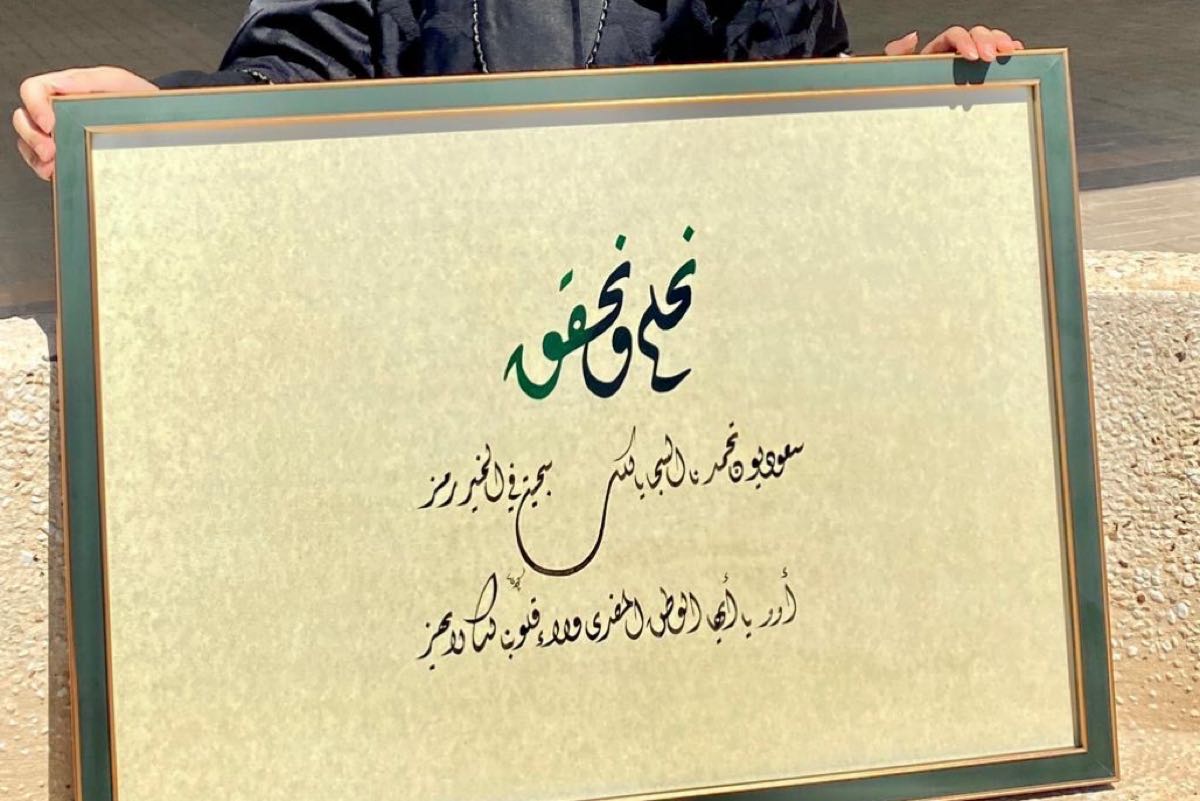 نحلم ونحقق
سعوديون تحمدنا السجايا لكل سجية في الخير رمز
يا أيها الوطن المفدى ولاء قلوبنا لك لا يهز